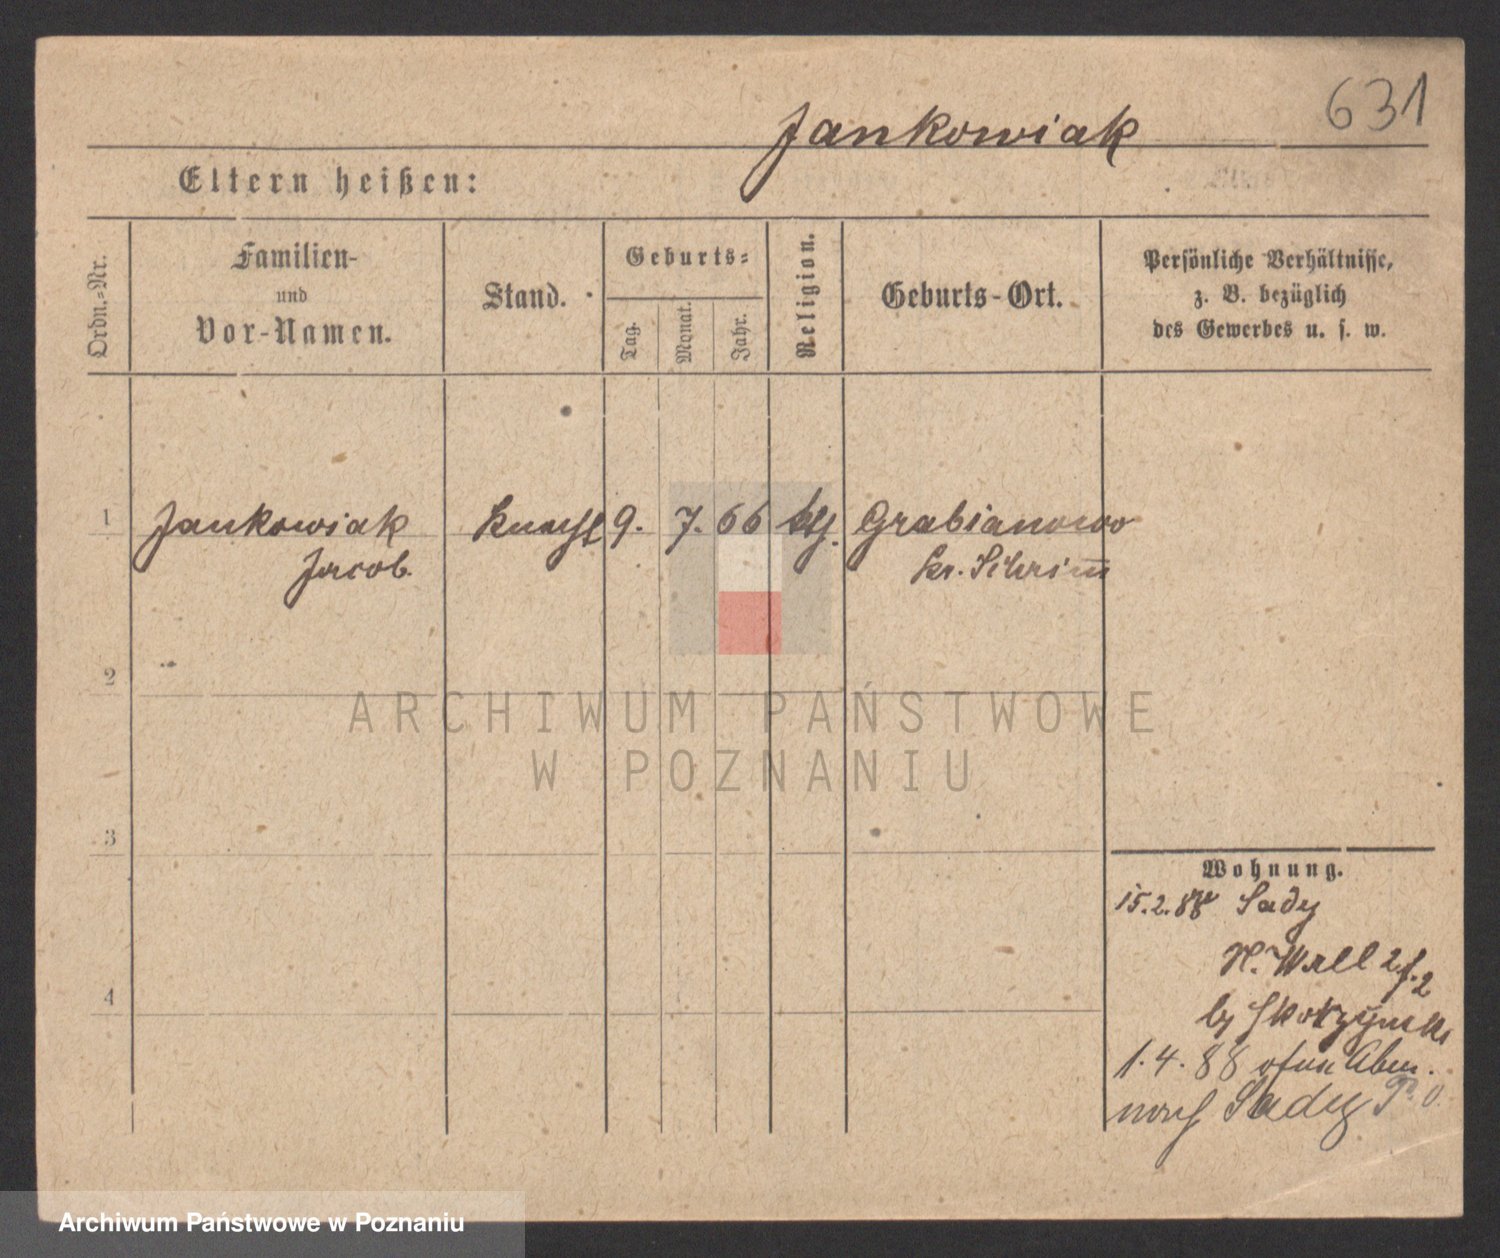 631
Jankowiak
Eltern heißen:
Ordn.-Nr.
Familien-
und
Vor-Namen.
Stand.
Geburts-
Tag.
Monat.
Jahr.
Religion.
Geburts-Ort.
Persönliche Verhältnisse,
z. B. bezüglich
des Gewerbes u. s. w.
1 Jankowiak Knecht 9. 7. 66 Grabianowo
Jacob. Kr. Schrim̅
2
ARCHIWUM PAŃSTWOWE
W POZNANIU
3
Wohnung.
15.2.88 Sady
4
H. Wall 2
1.4.88 ohne Abm.
nach Sady P. O.
Archiwum Państwowe w Poznaniu